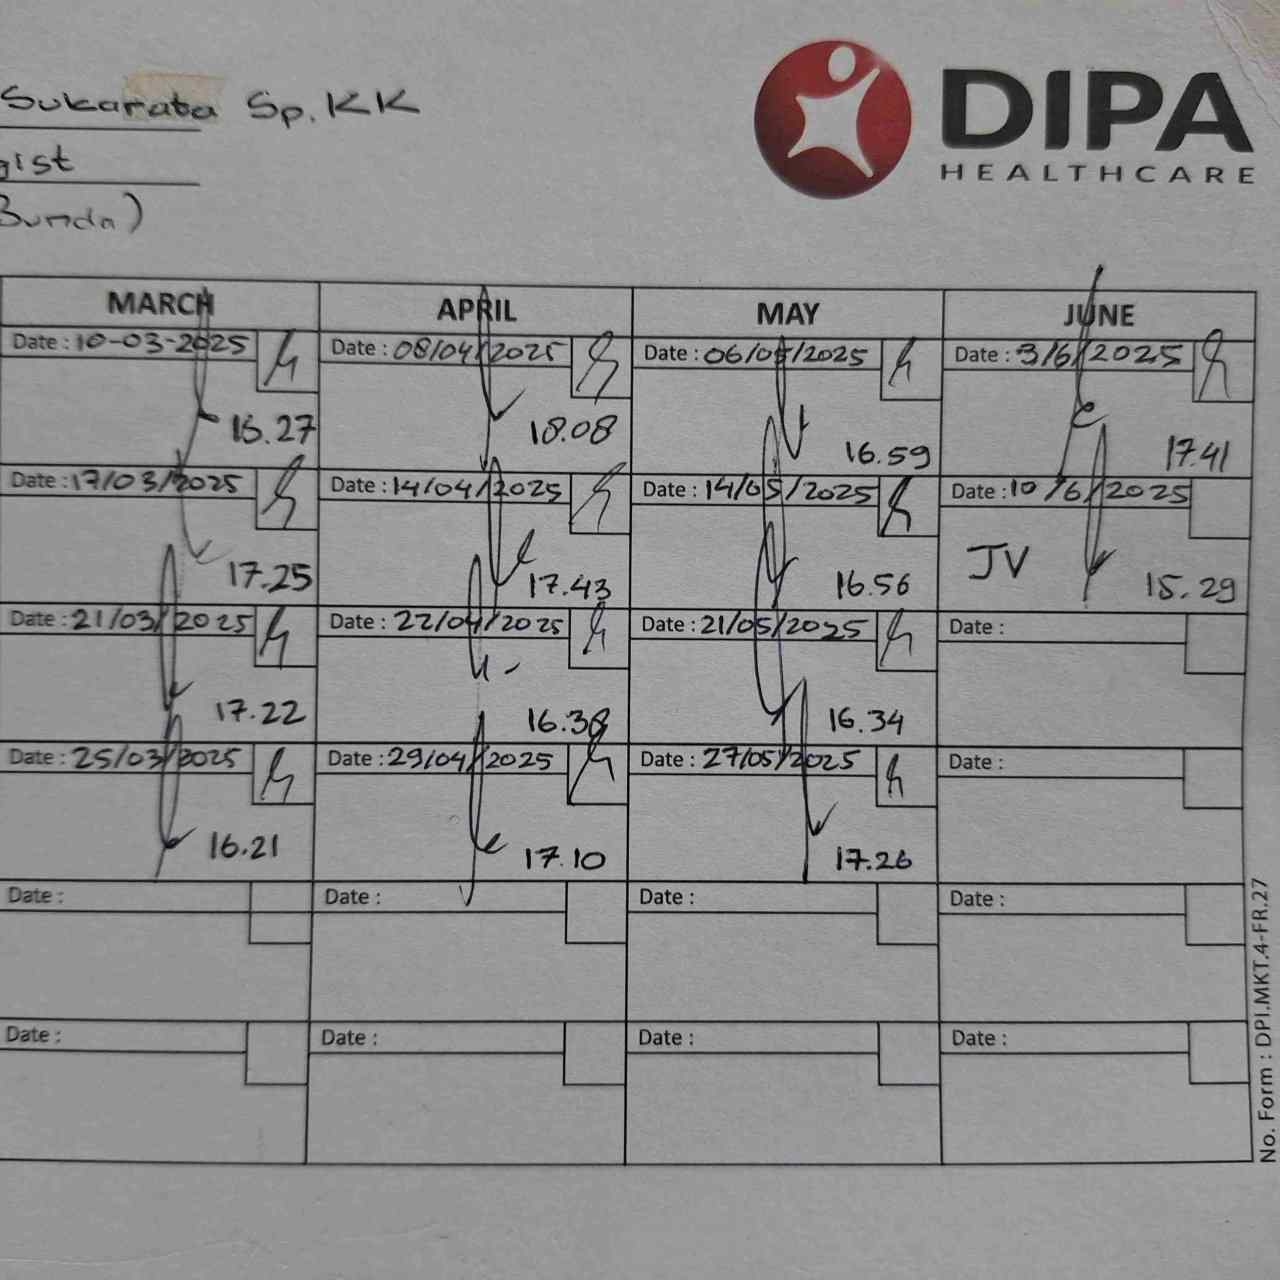 Sukarata Sp.KK
gist
Bunda)
DIPA
HEALTHCARE
MARCH APRIL MAY JUNE
Date : 10-03-2025 Date : 08/04/2025 Date : 06/05/2025 Date : 3/6/2025
15.27 18.08 16.59 17.41
Date : 17/03/2025 Date : 14/04/2025 Date : 14/05/2025 Date : 10/6/2025
17.25 17.43 16.56 JV 15.29
Date : 21/03/2025 Date : 22/04/2025 Date : 21/05/2025 Date :
17.22 16.38 16.34
Date : 25/03/2025 Date : 29/04/2025 Date : 27/05/2025 Date :
16.21 17.10 17.26
Date : Date : Date : Date :
Date : Date : Date : Date :
No. Form : DPI.MKT.4-FR.27